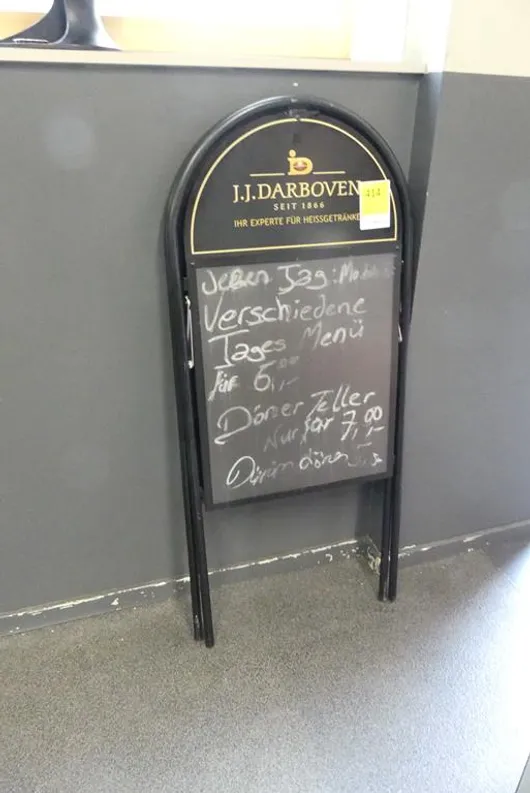 J.J.DARBOVEN
414
SEIT 1866
IHR EXPERTE FÜR HEISSGETRÄNKE
Jeden Tag:
Verschiedene
Tages Menü
für 6,00,-
Döner Teller
Nur für 7,00,-
Dürüm döner